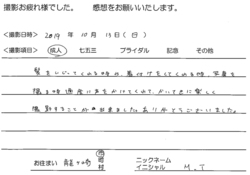 撮影お疲れ様でした。　感想をお願いいたします。
<撮影日時>　2019年　10月　13日（日）
<撮影項目>　成人　七五三　ブライダル　記念　その他
髪をいじってくれる時や、着付けをしてくれる時、写真を
撮る時適度に声をかけてくれて、かいてきに楽しく
撮影することが出来ました。ありがとうございました。
お住まい　龍ケ崎　市郡町村　ニックネーム
イニシャル　M.T